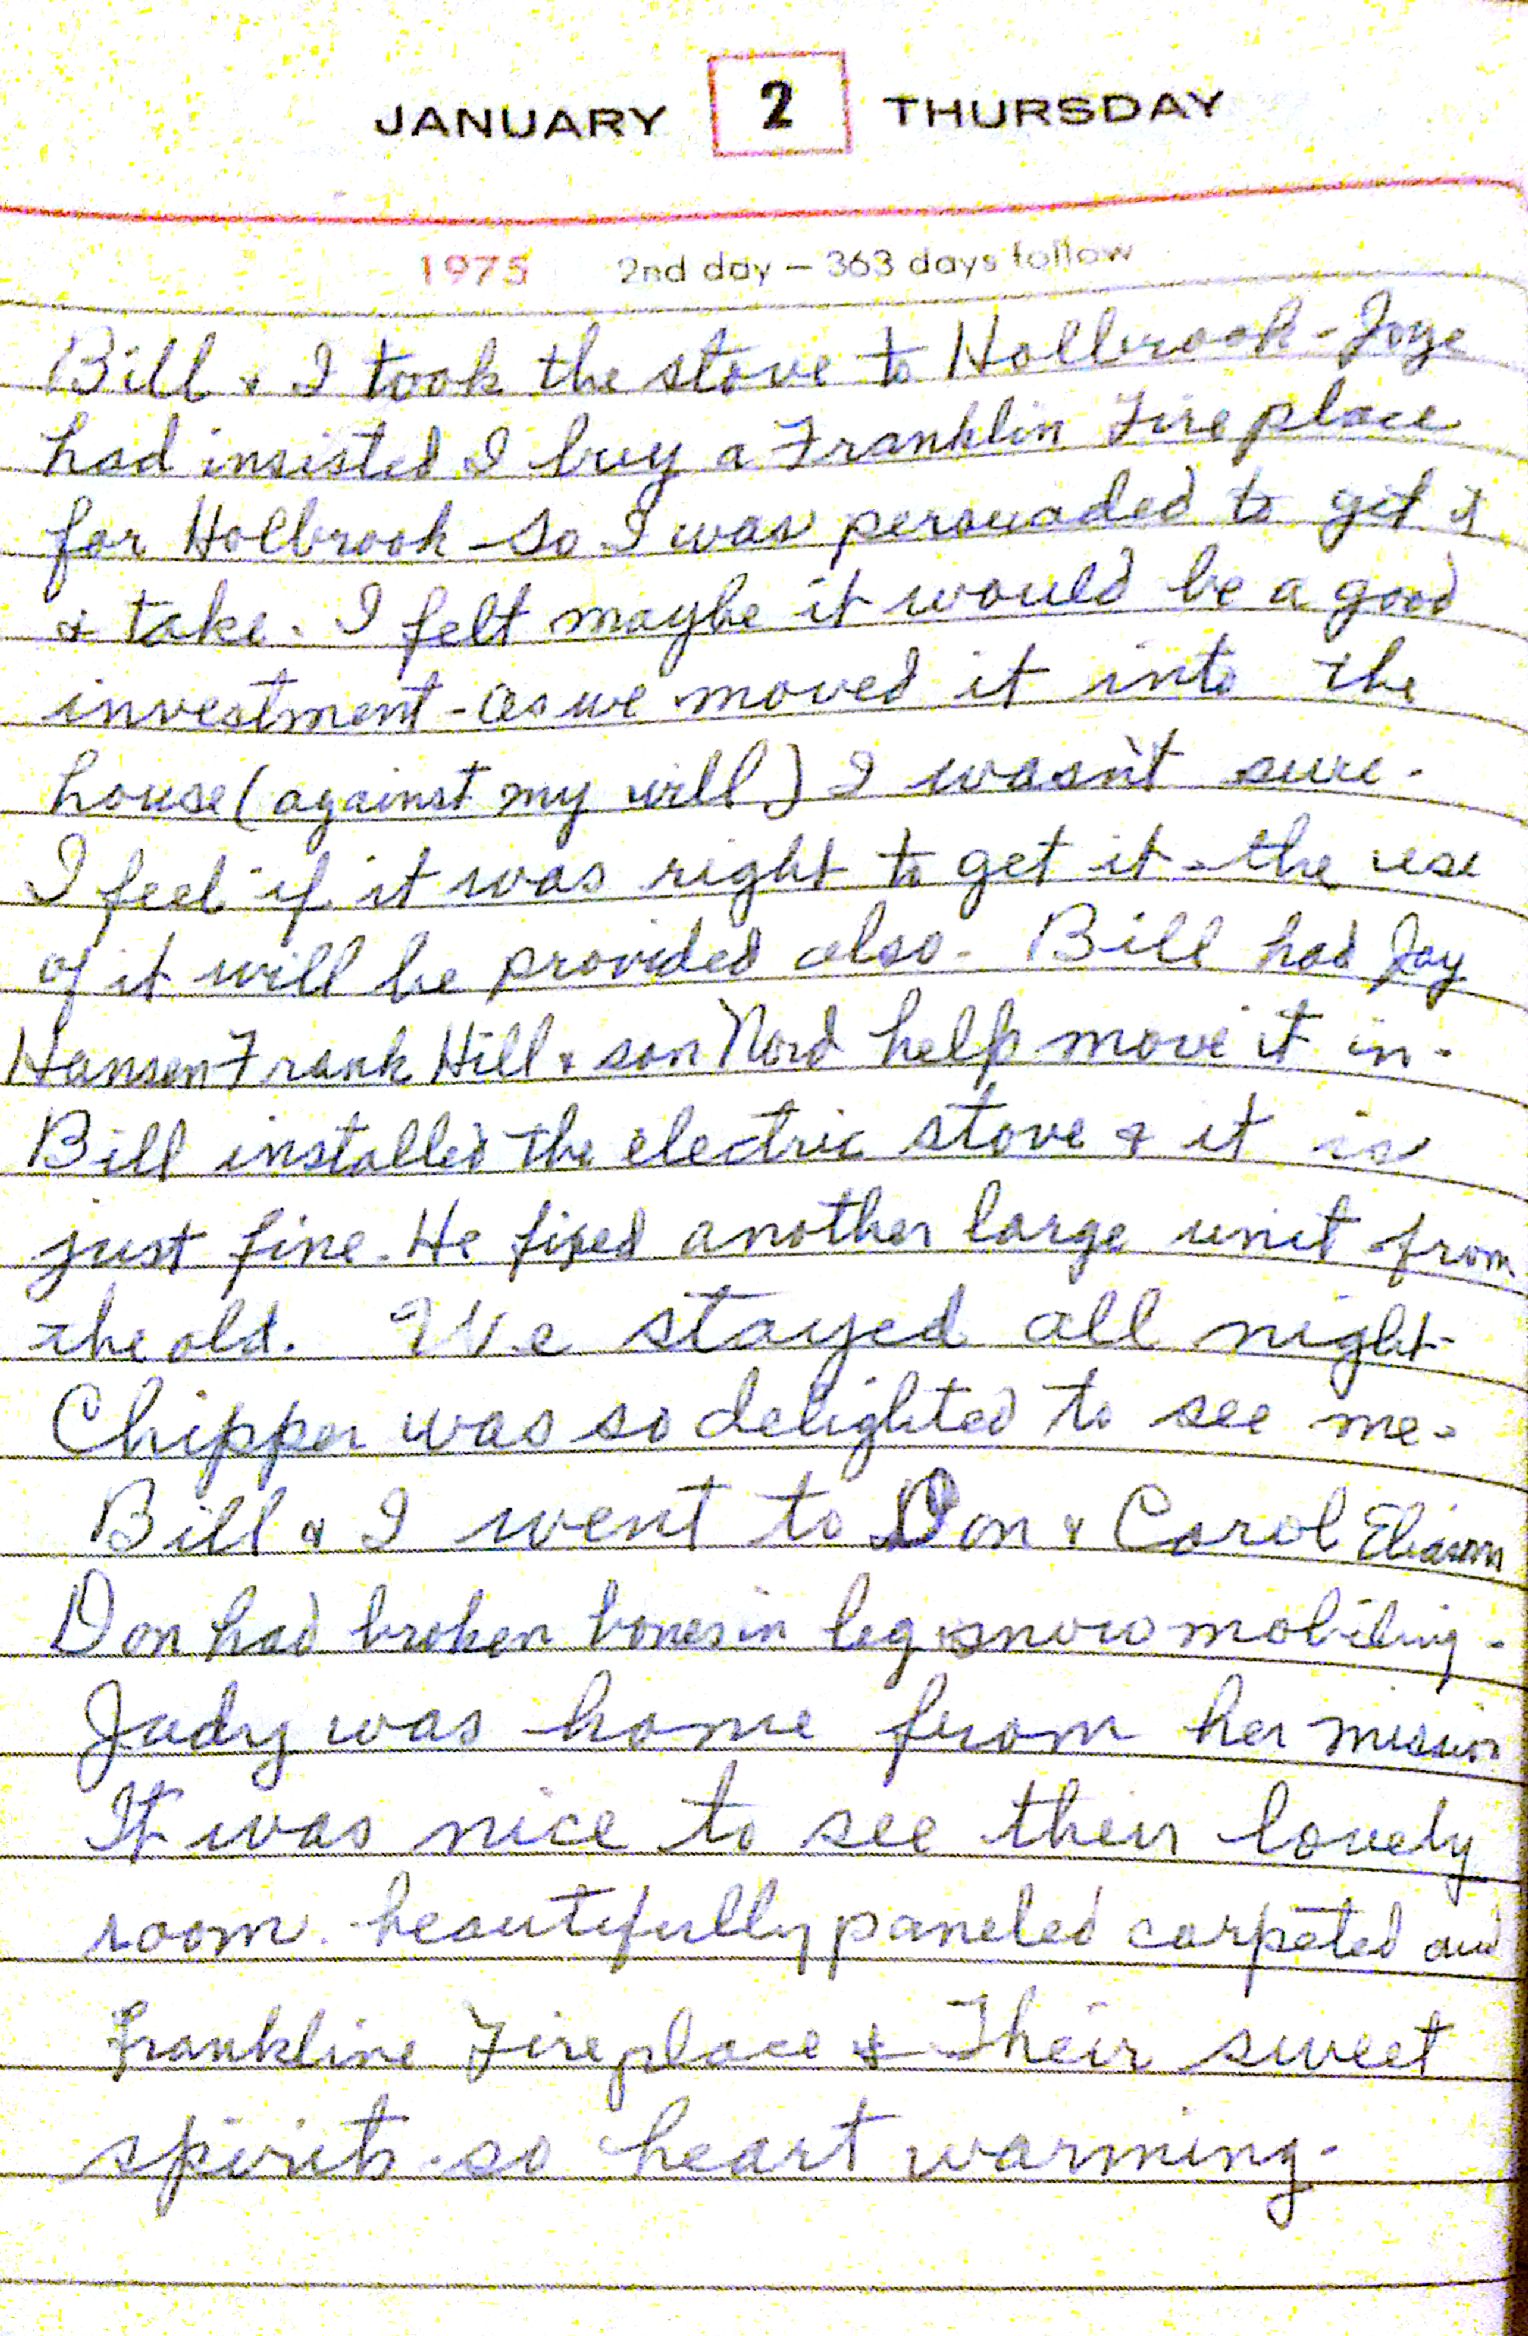 JANUARY 2 THURSDAY
1975 2nd day – 363 days follow
Bill & I took the stove to Holbrook - Joye
had insisted I buy a Franklin Fireplace
for Holbrook so I was persuaded to get it
& take. I felt maybe it would be a good
investment - as we moved it into the
house (against my will) I wasn't sure.
I feel if it was right to get it - the use
of it will be provided also. Bill had Jay
Hansen Frank Hill & son Nord help move it in.
Bill installed the electric stove & it is
just fine. He fixed another large unit from
the old. We stayed all night
Chipper was so delighted to see me.
Bill & I went to Don & Carol Eliason
Don had broken bones in leg snowmobiling.
Judy was home from her mission
It was nice to see their lovely
room. beautifully paneled carpeted and
frankline Fireplace & Their sweet
spirits - so heart warming.